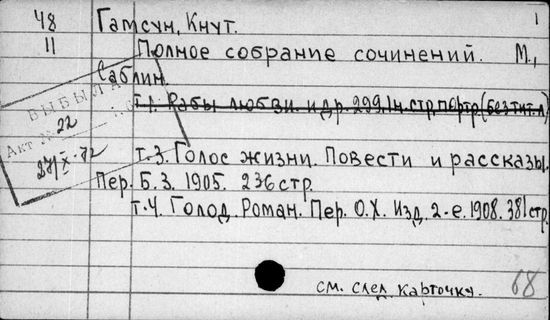 48 Гамсун, Кнут. 1
11 Полное собрание сочинений. М.,
Саблин.
т.1. Рабы любви и др. 299, 1н. стр. портр. (без тит. л)
ВЫБЫЛА
Акт № 22
27/IX-72
т.3. Голос жизни. Повести и рассказы.
Пер. Б.З. 1905. 236 стр.
т.4. Голод. Роман. Пер. О.Х. Изд. 2-е. 1908. 381 стр.
см. след. карточку. 68